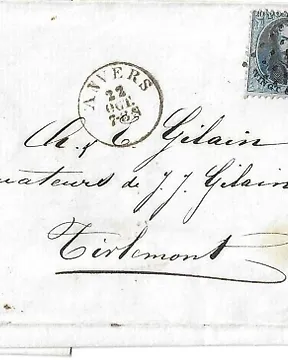 ANVERS
22
OCT.
Ch. & E. Gilain
uateurs de J. J. Gilain
Tirlemont